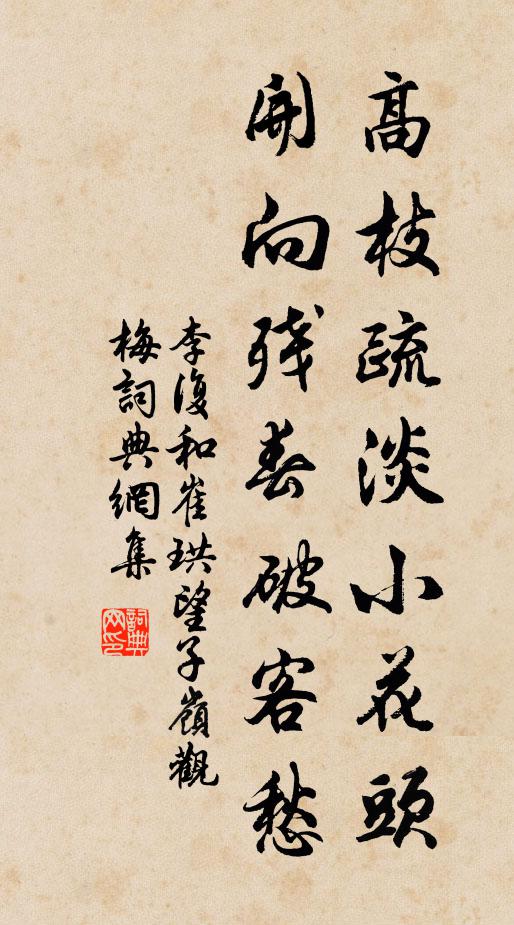 高枝疏淡小花頭
開向残春破客愁
李復和崔珙望子嶺觀
梅詞典網集
詞典
网印